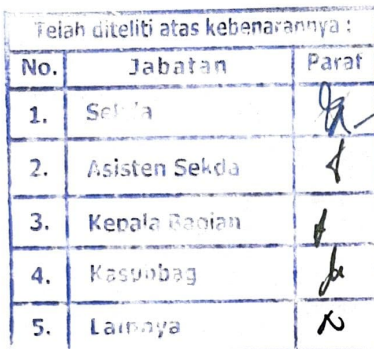 Telah diteliti atas kebenarannya :
No. Jabatan Paraf
1. Sekda
2. Asisten Sekda
3. Kepala Bagian
4. Kasubbag
5. Lainnya